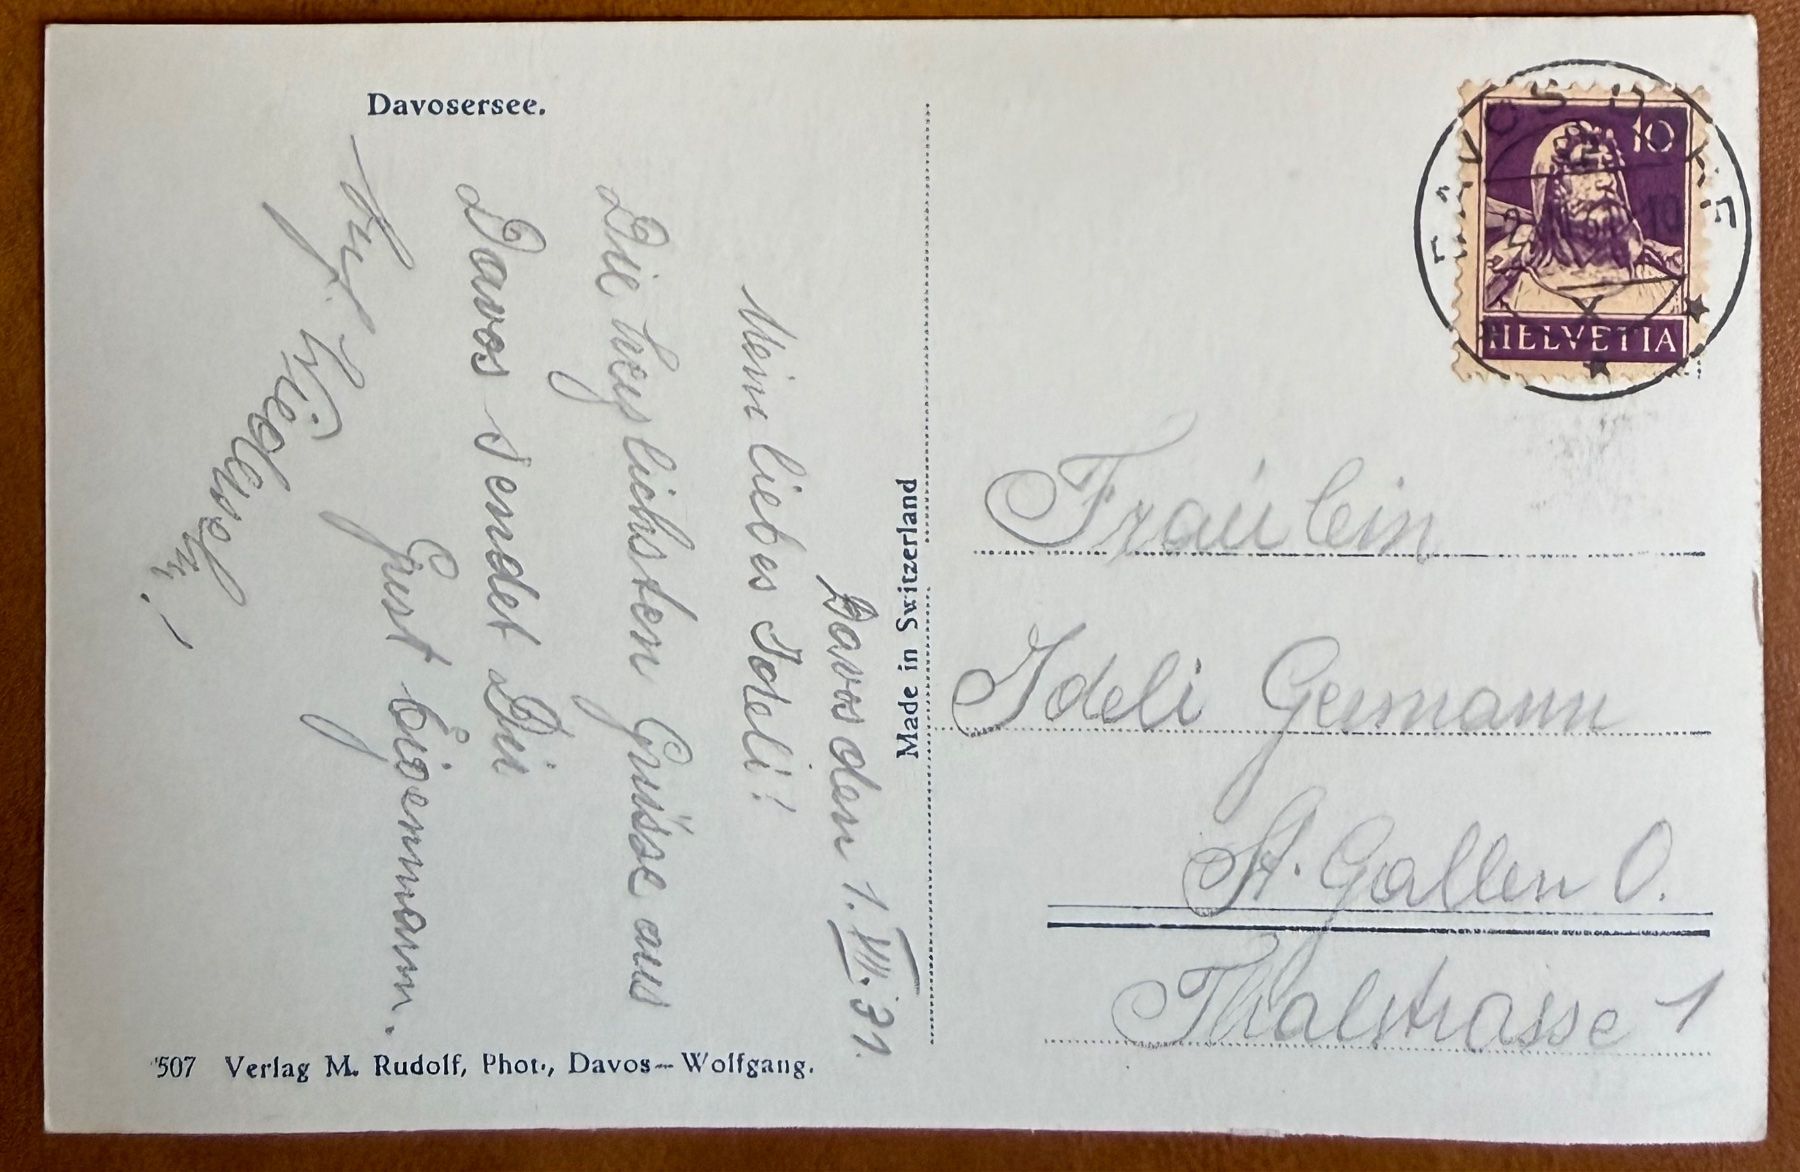 Davosersee.
Davos den 1. VII. 31.
Mein liebes Ideli!
Die herzlichsten Grüsse aus
Davos sendet Dir
Gust Eigenmann.
Auf Wiederseh
Made in Switzerland
507 Verlag M. Rudolf, Phot., Davos-Wolfgang.
10
HELVETIA
DAVOS
Fräulein
Ideli Germann
St. Gallen O.
Thalstrasse 1